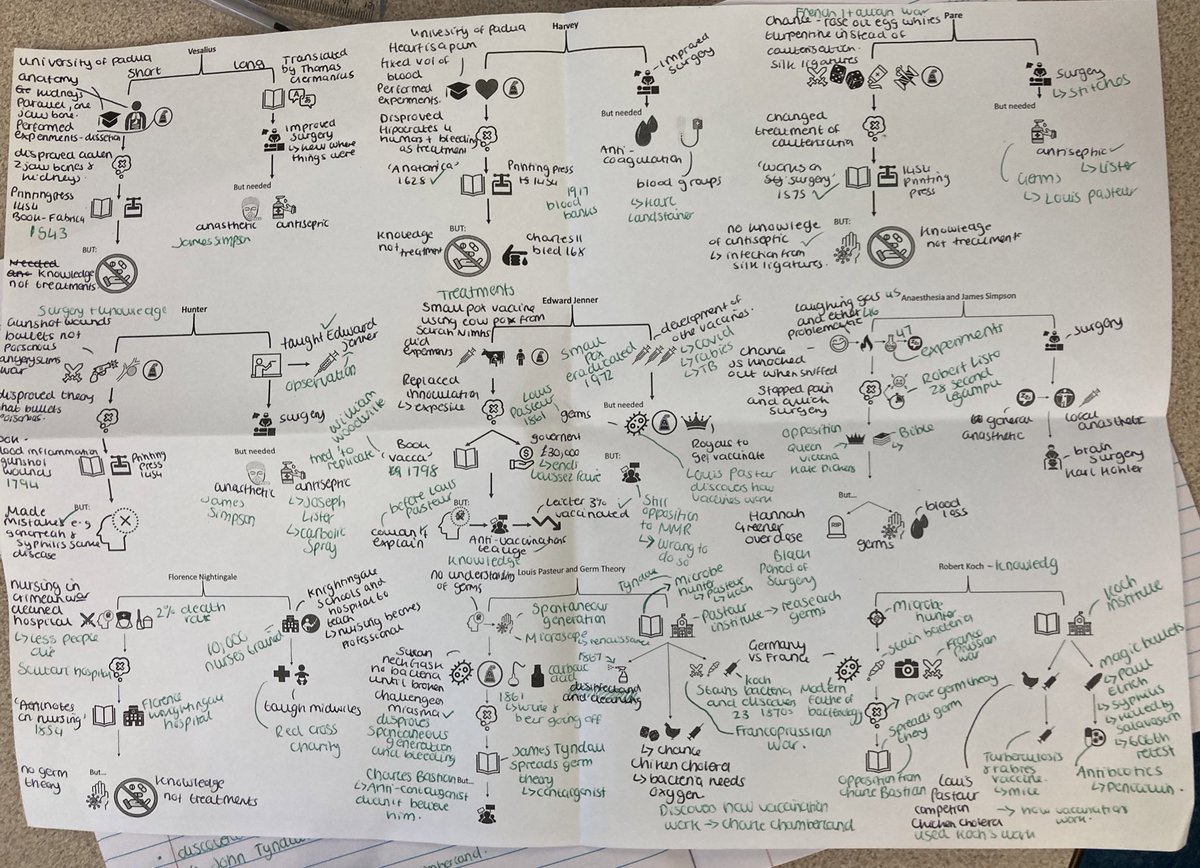 Vesalius
university of padua
short
long
Translated
by Thomas
Germanius
anatomy
kidneys
Parallel, one
Jaw bone.
Performed
experiments - dissection
improved
surgery
↳ knew where
things were
disproved Galen
2 jaw bones &
kidneys.
But needed
Printing press
1454
Book - Fabrica
1543
anasthetic
antiseptic
James Simpson
BUT:
Needed
knowledge
not treatments
Harvey
university of Padua
Heart is a pum
fixed vol of
blood
Performed
experiments.
Disproved
Hipocrates 4
humors + bleeding
as treatment
'Anatomica'
1628 ✓
Printing press
1454
BUT:
Knowledge
not treatment
Charles II
bled 16x
Improved
surgery
But needed
Anti-
coagulation
blood groups
↳ Karl
Landstainer
1917
blood
banks
Pare
French Italian war
Chance - rose oil egg whites
turpentine instead of
cauterisation.
silk ligatures
changed
treatment of
'works on
surgery'
1575 ✓
1454
Printing
press
BUT:
no knowlege
of antiseptic ✓
↳ infection from
silk ligatures.
Knowledge
not treatments
surgery
↳ stitches
But needed
antiseptic ✓
↳ Lister
Germs
↳ Louis pasteur
Hunter
Surgery + knowledge
Gunshot wounds
bullets not
poisonous
war
taught Edward
Jenner
observation
disproved theory
that bullets
surgery
blood inflammation
gunshot
wounds
1794
Printing
Press
1454
But needed
anasthetic
James
Simpson
antiseptic
↳ Joseph
Lister
↳ carbolic
Spray
William
Woodville
tried to
replicate.
BUT:
Made
mistakes e.g
gonorreah &
Syphilis same
disease
Edward Jenner
Treatments
Small pox vaccine
using cow pox from
Sarah Nimhs
did
experiments
Replaced
innoculation
↳ expesive
Small
pox
eradicated
1972
development of
other vaccines.
↳ Covid
↳ rabies
↳ TB
Louis
Pasteur
1861
germs
But needed
Royals to
get vaccinate
Book
'vacca'
1798
government
£30,000
↳ ends
Laissez faire
Louis Pasteur
discovers how
vaccines work
before Louis
Pasteur
BUT:
couldn't
explain
Anti-vaccination
league
Leicter 3%
vaccinated
BUT:
Still
opposition
to MMR
↳ Wrong to
do so
Anaesthesia and James Simpson
laughing gas
and ether
problematic
47
experiments
chance
JS knocked
out when sniffed
Stopped pain
and quick
surgery
Robert Listo
28 second
legampu
opposition
Queen
victoria
Bible
But...
Hannah
Greener
overdose
germs
blood
loss
Black
Period of
Surgery
surgery
general
anasthetic
local
anasthetic
brain
surgery
Karl Kohler
Florence Nightingale
nursing in
crimean war
cleaned
hospital
↳ less people
die
2% death
rate
Scutari hospital
Knightingale
schools and
hospital to
teach
↳ nursing becomes
professional
10,000
nurses trained
Red cross
charity
taugh midwives
Florence
hospital
no germ
theory
But...
Knowledge
not treatments
Louis Pasteur and Germ Theory
Knowledge
no understanding
of germs
Spontaneour
generation
Microscope
↳ renaissance
Swan
neck flask
no bacteria
until broken
carbolic
acid
challenges
miasma ✓
disproves
spontaneous
generation
and bleeding
1861
↳ wine &
beer going off
James Tyndau
Spreads germ
theory
↳ contagionist
Charles Bastian
↳ Anti-contagionist
doesn't believe
him.
But...
Tyndau
microbe
hunter
↳ Pasteur
↳ Koch
Pastuer
institute → reasearch
germs
1867
disinfectand
and cleaning
Germany
vs France
Koch
Stains bacteria
and discoves
23 1870s
Francoprussian
war.
↳ chance
chicken cholera
↳ bacteria needs
oxygen
Discover how vaccination
work → charle chamberland
Robert Koch - knowledg
microbe
hunter
stain bacteria
Franco
Prussian
war
Modern
Father of
bacteriology
Prove germ theory
Spreads germ
theory
opposition from
charle Bastian
Koch
institute
magic bullets
↳ Paul
Erlich
↳ syphilus
606th
retest
Turberculosis
& rabies
vaccine.
↳ mice
Antibiotics
Louis
Pasteur
Chicken cholera
used Koch's work
→ how vaccination
work.
discovere
John Tyndau